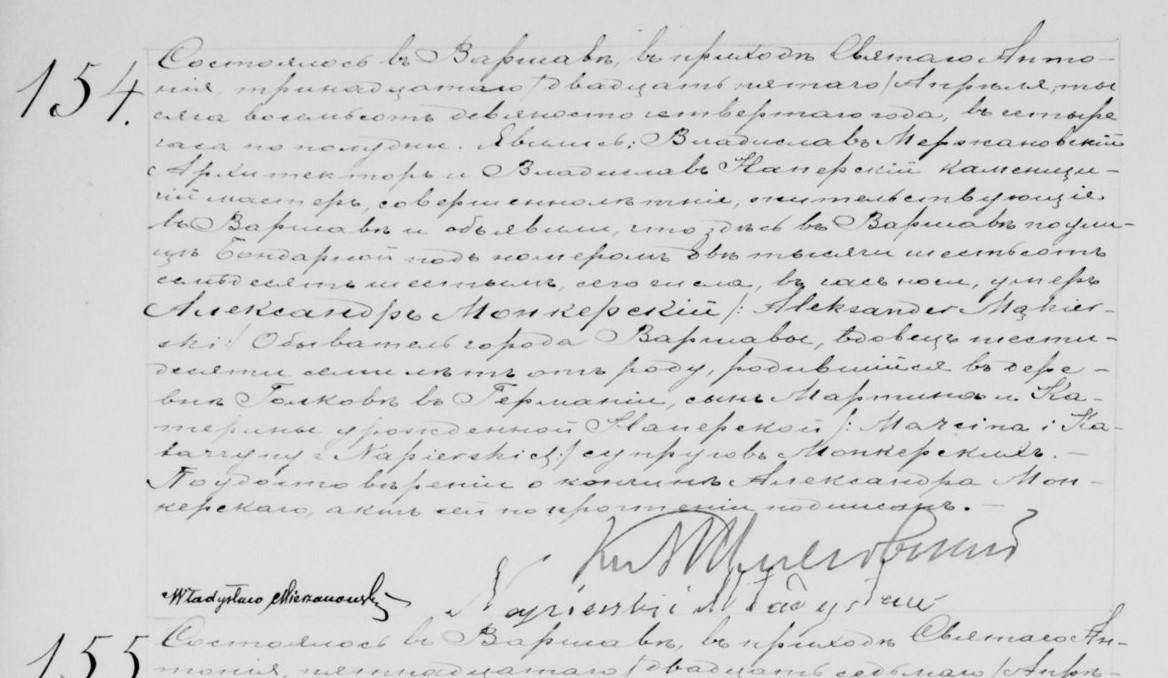 154.
Состоялось въ Варшавѣ, въ приходѣ Святаго Анто-
нія, тринадцатаго /двадцать пятаго/ Апрѣля, ты
сяча восемьсотъ девяносто четвертаго года, въ четыре
часа по полудни. Явились: Владиславъ Мержановскій
Архитекторъ и Владиславъ Наперскій каменщи-
чій мастеръ, совершеннолѣтніе, жительствующіе
въ Варшавѣ и объявили, что здѣсь въ Варшавѣ по ули-
цѣ Бондарной подъ номеромъ двѣ тысячи шестьсотъ
семьдесятъ шестымъ, сего числа, въ часъ ночи, умеръ
Александръ Монкерскій /: Aleksander Mąkier-
ski:/ Обыватель города Варшавы, вдовецъ шести-
десяти семи лѣтъ отъ роду, родившійся въ дере-
внѣ Голковѣ въ Германіи, сынъ Мартина и Ка-
терины урожденной Наперской /: Marcina i Ka-
tarzyny z Napierskich:/ супруговъ Монкерскихъ. —
По удостовѣреніи о кончинѣ Александра Мон-
керскаго, актъ сей по прочтеніи подписанъ. —
Władysław Mierzanowski Napierski Władysław
155 Состоялось въ Варшавѣ, въ приходѣ Святаго Ан-
тонія, пятнадцатаго /двадцать седьмаго/ Апрѣ-